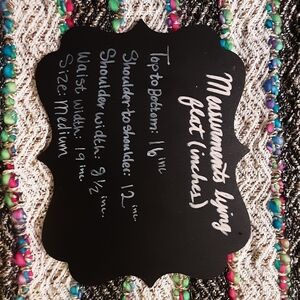 Measurements lying
flat (inches)
Top to Bottom: 16 inc
Shoulder to shoulder: 12 inc.
Shoulder width: 8 1/2 inc.
Waist width: 19 inc.
Size: Medium